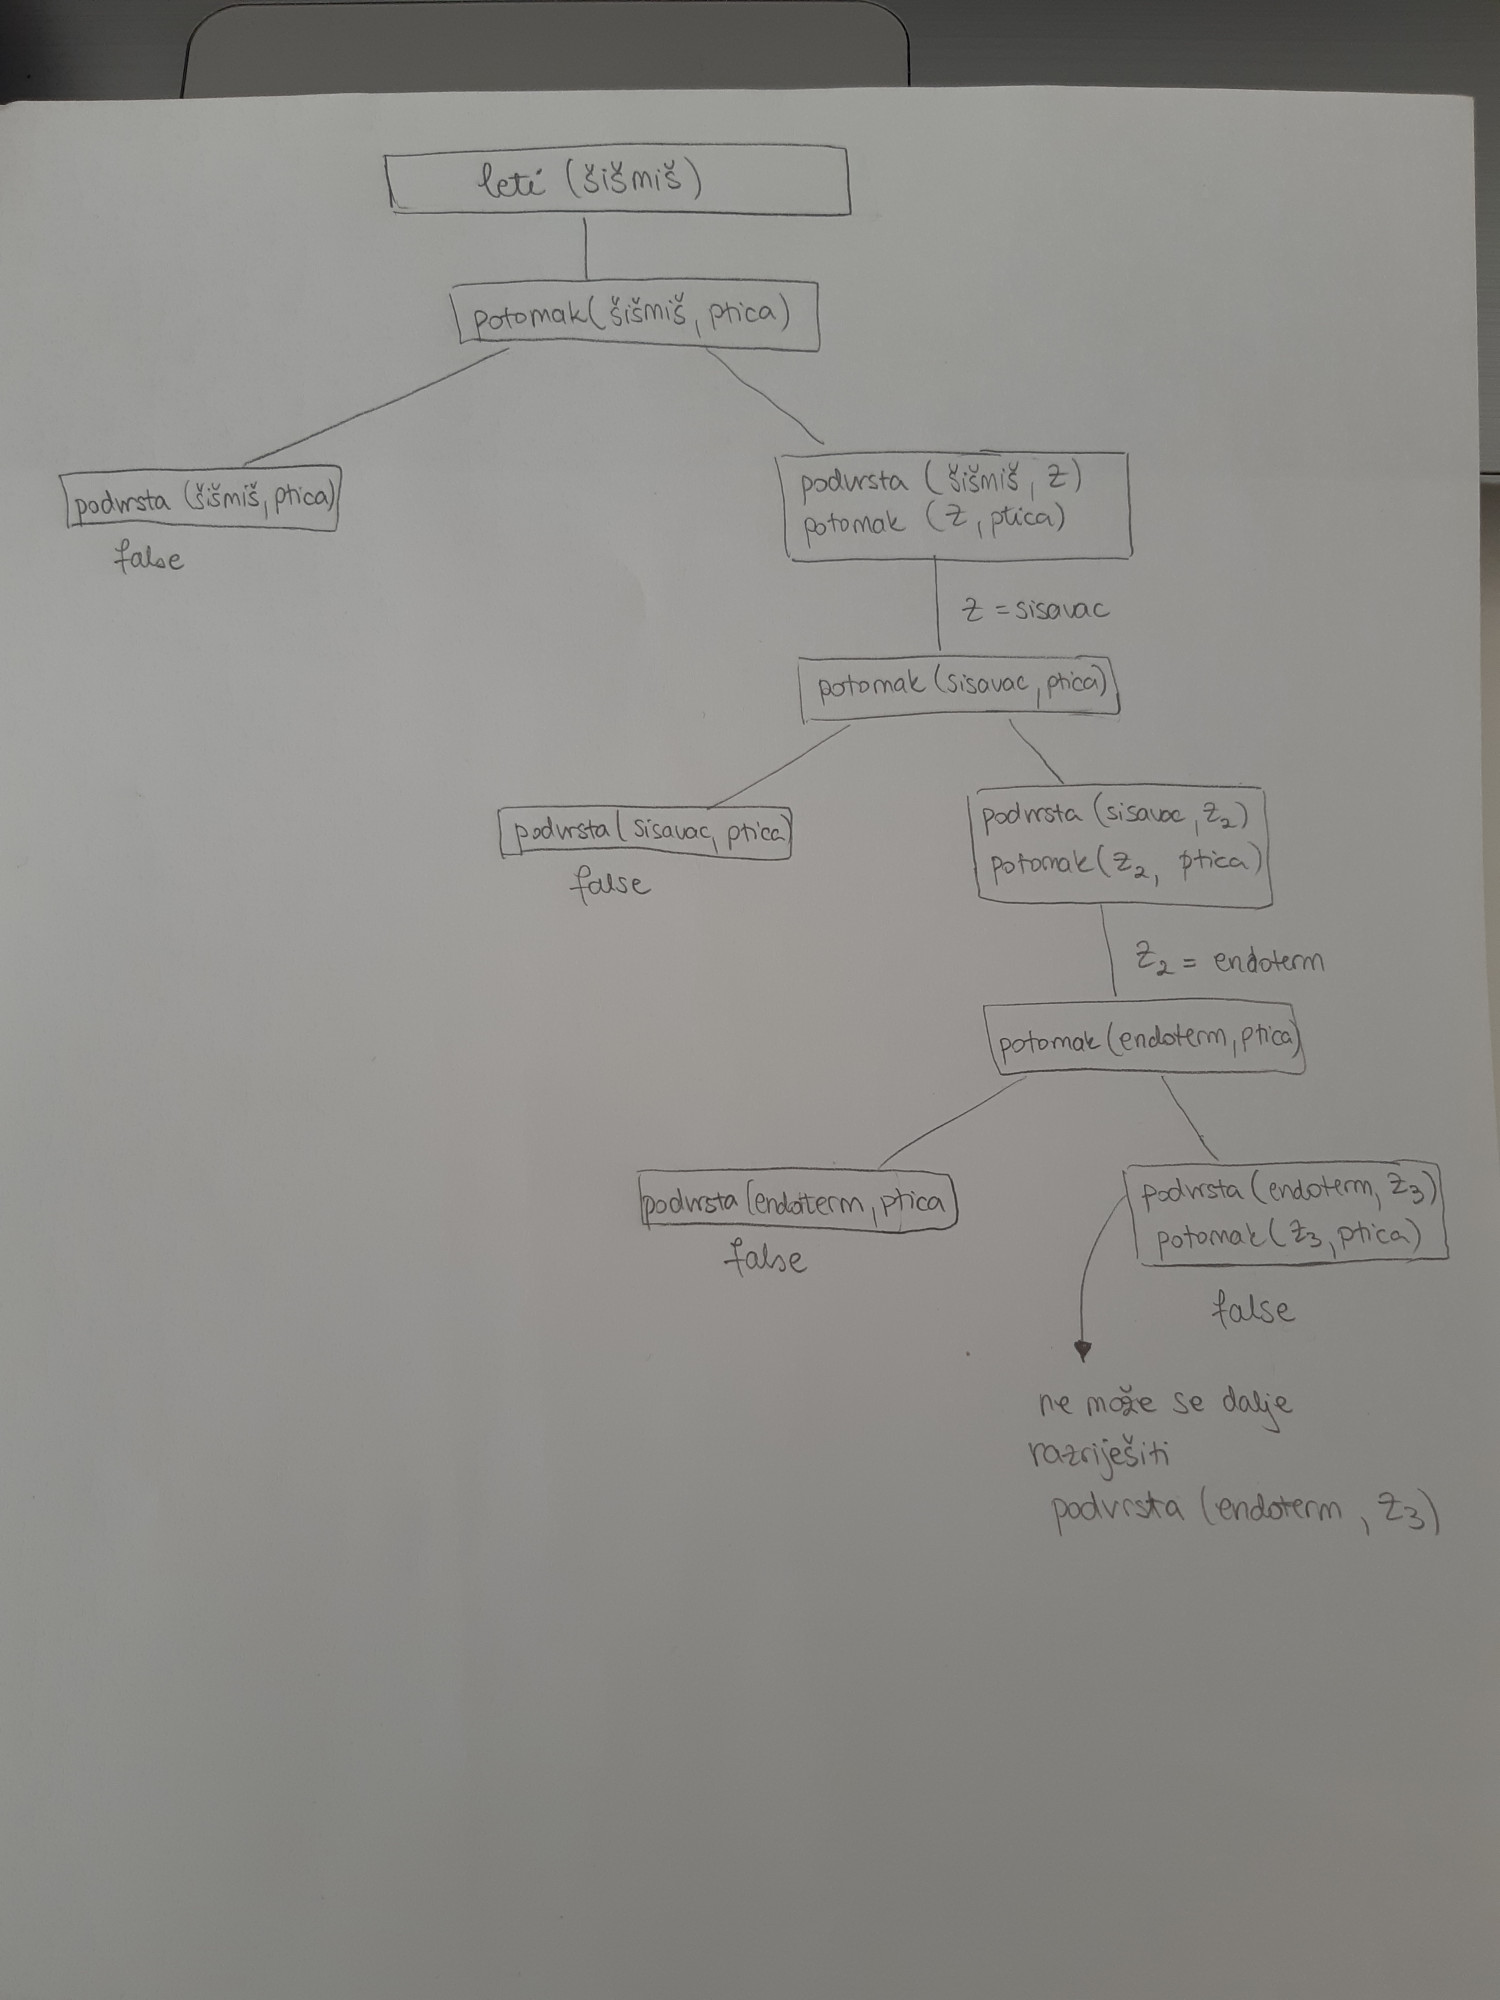 leti (šišmiš)
potomak(šišmiš, ptica)
podvrsta (šišmiš, ptica)
false
podvrsta (šišmiš, z)
potomak (z, ptica)
z = sisavac
potomak (sisavac, ptica)
podvrsta (sisavac, ptica)
false
podvrsta (sisavac, z2)
potomak (z2, ptica)
z2 = endoterm
potomak (endoterm, ptica)
podvrsta (endoterm, ptica
false
podvrsta (endoterm, z3)
potomak (z3, ptica)
false
ne može se dalje
razriješiti
podvrsta (endoterm, z3)